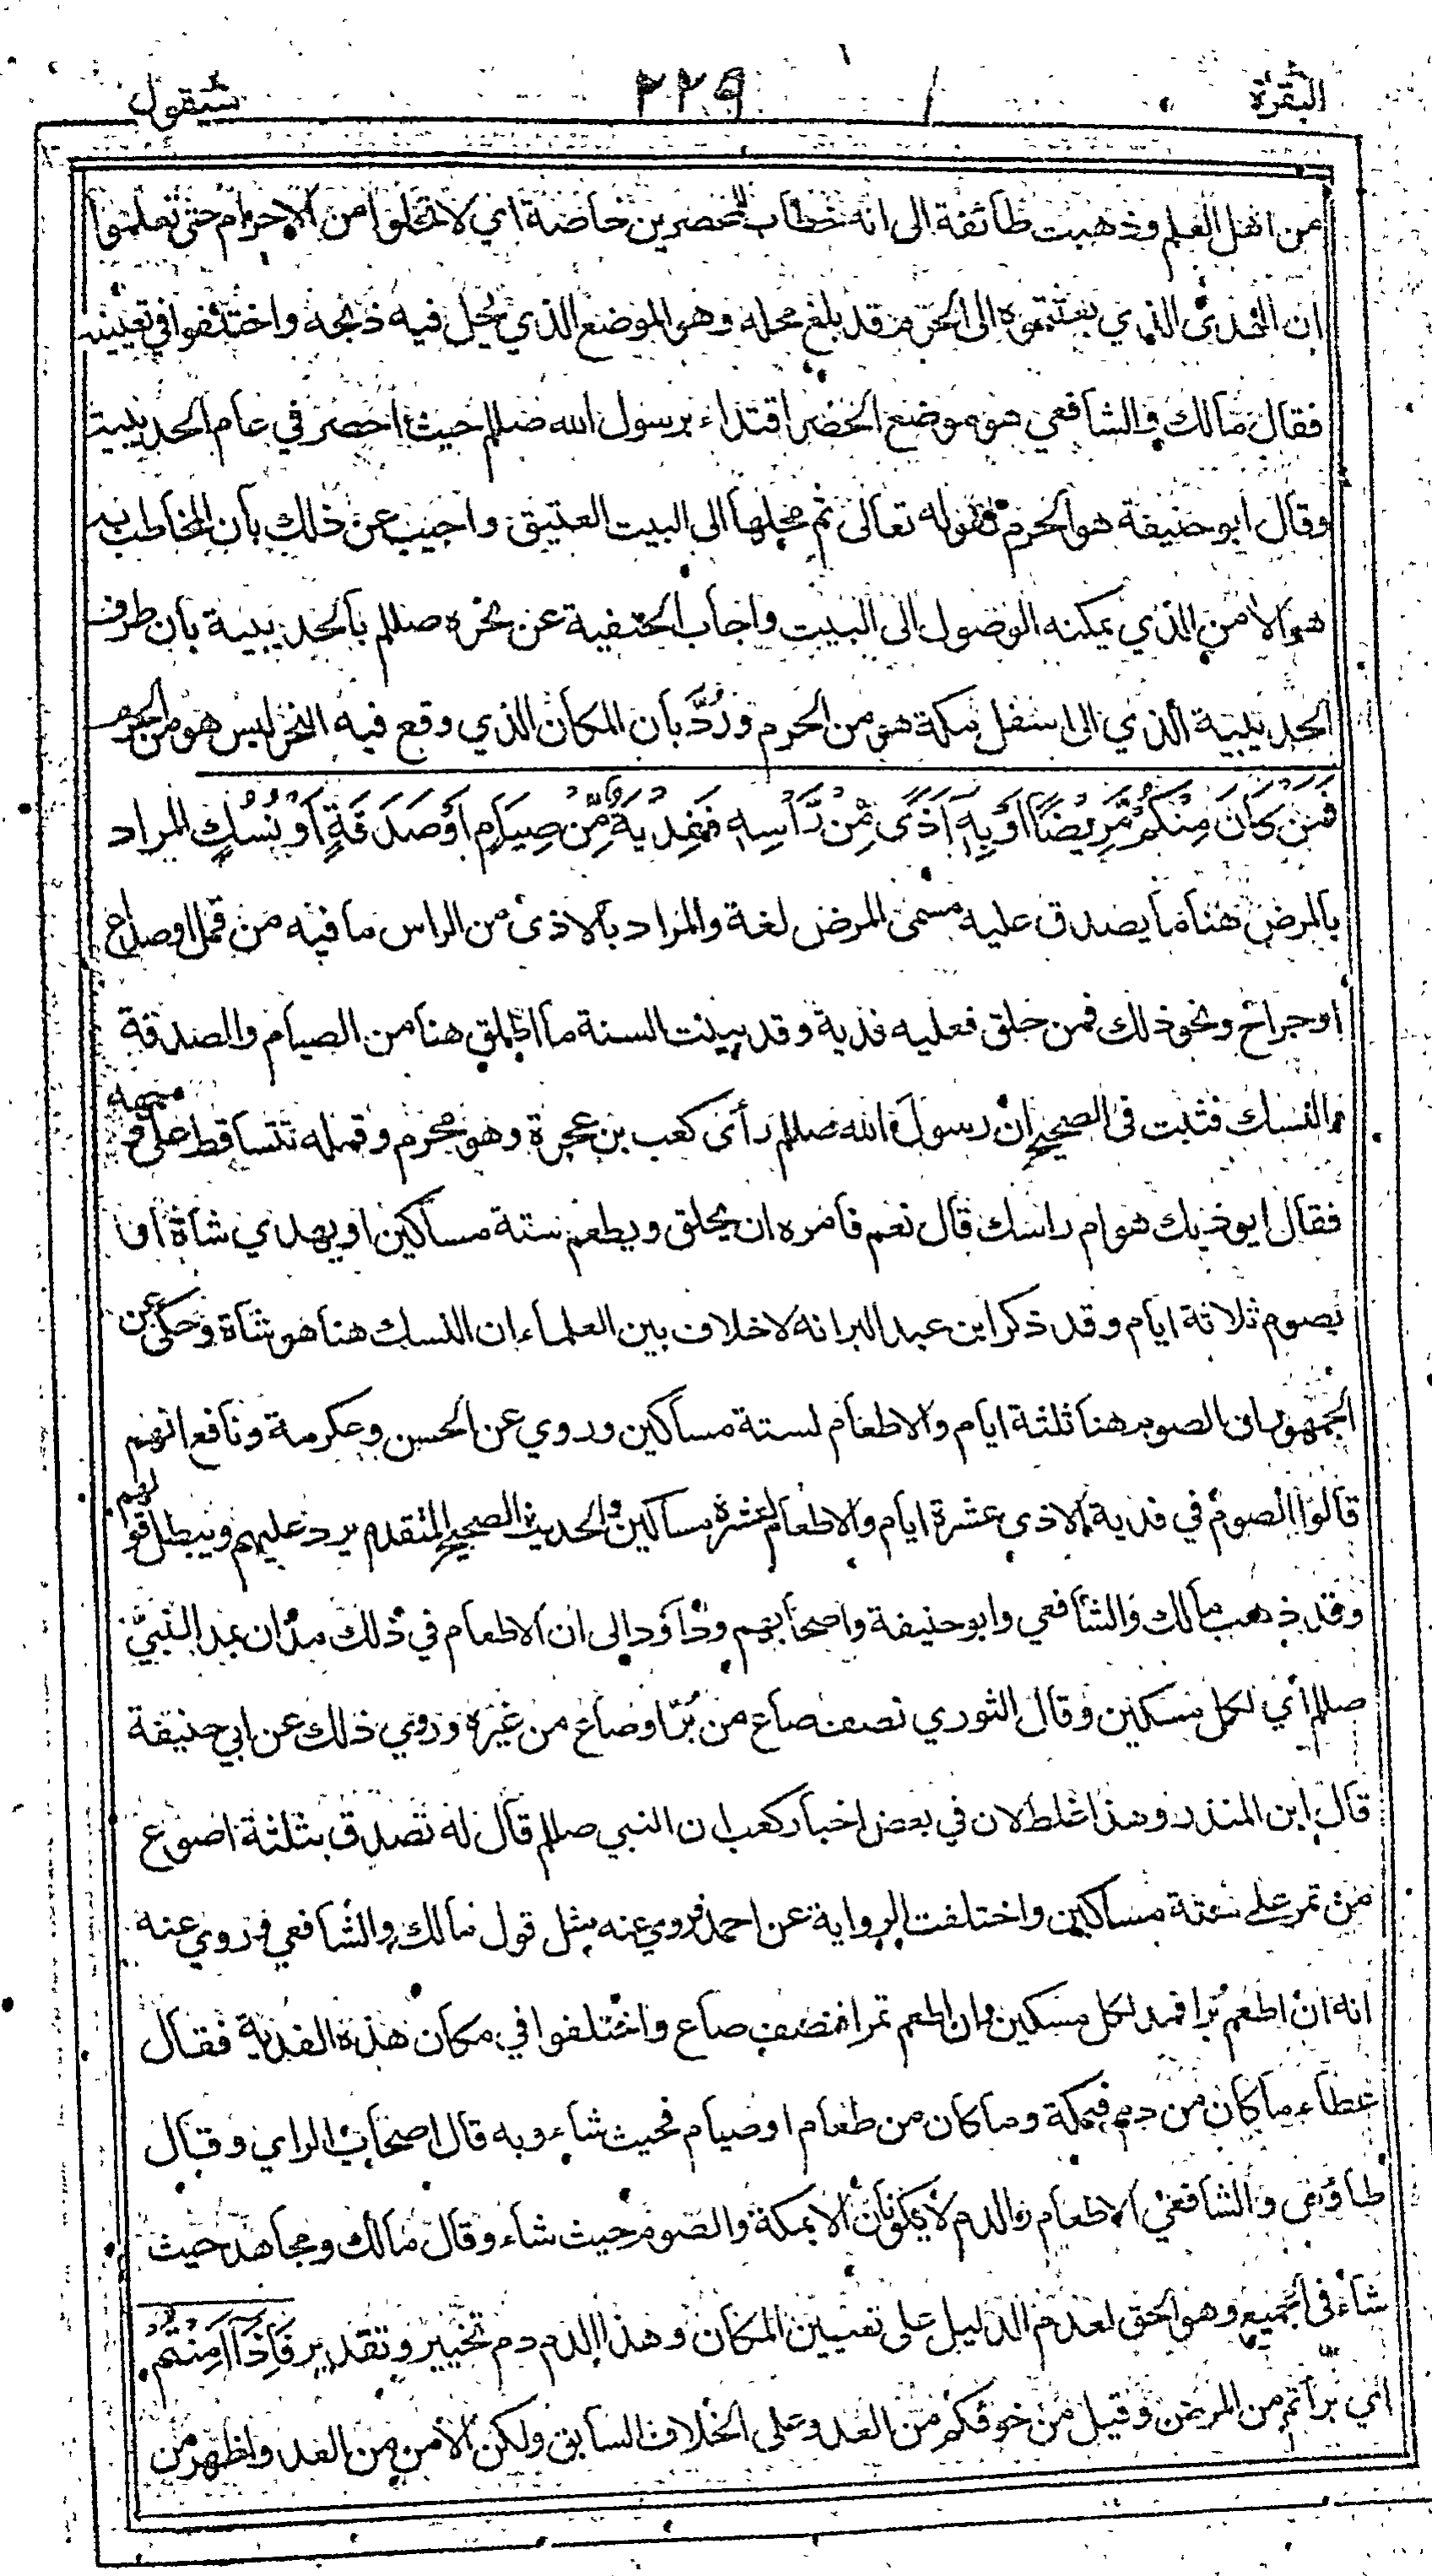 البقرة ٢٢٩ سيقول
من اهل العلم وذهبت طائفة الى انه خطاب للمحصرين خاصة اي لا تحلوا من الاحرام حتى تعلموا
ان الهدى الذي بعثتموه الى الحرم قد بلغ محله وهو الموضع الذي يحل فيه ذبحه واختلفوا في تعيينه
فقال مالك والشافعي هو موضع الحصر اقتداء برسول الله صللم حيث احصر في عام الحديبية
وقال ابو حنيفة هو الحرم لقوله تعالى ثم محلها الى البيت العتيق واجيب عن ذلك بأن المخاطب به
هو الأمن الذي يمكنه الوصول الى البيت واجاب الحنفية عن نحره صللم بالحديبية بان طرف
الحديبية الذي الى اسفل مكة هو من الحرم ورُدَّ بان المكان الذي وقع فيه النحر ليس هو من الحرم
فَمَنْ كَانَ مِنْكُمْ مَّرِيْضًا اَوْ بِهٖٓ اَذًى مِّنْ رَّاْسِهٖ فَفِدْيَةٌ مِّنْ صِيَامٍ اَوْ صَدَقَةٍ اَوْ نُسُكٍ المراد
بالمرض هنا ما يصدق عليه مسمى المرض لغة والمراد بالاذى من الراس ما فيه من قمل او صداع
او جراح ونحو ذلك فمن حلق فعليه فدية وقد بينت السنة ما اطلق هنا من الصيام والصدقة
والنسك فثبت في الصحيح ان رسول الله صللم رأى كعب بن عجرة وهو محرم وقمله تتساقط على وجهه
فقال ايوذيك هوام راسك قال نعم فامره ان يحلق ويطعم ستة مساكين او يهدي شاة او
يصوم ثلاثة ايام وقد ذكر ابن عبد البر انه لا خلاف بين العلماء ان النسك هنا هو شاة وحكى عن
الجمهور ان الصوم هنا ثلثة ايام والاطعام لستة مساكين وروي عن الحسن وعكرمة ونافع انهم
قالوا الصوم في فدية الاذى عشرة ايام والاطعام لعشرة مساكين والحديث الصحيح المتقدم يرد عليهم ويبطل قولهم
وقد ذهب مالك والشافعي وابو حنيفة واصحابهم وداؤد الى ان الاطعام في ذلك مدان بمد النبيّ
صللم اي لكل مسكين وقال الثوري نصف صاع من بُرّ او صاع من غيره وروي ذلك عن ابي حنيفة
قال ابن المنذر وهذا غلط لان في بعض اخبار كعب ان النبي صللم قال له تصدق بثلثة اصوع
من تمر على ستة مساكين واختلفت الرواية عن احمد فروي عنه مثل قول مالك والشافعي وروي عنه
انه ان اطعم بُرا فمد لكل مسكين وان اطعم تمرا فنصف صاع واختلفوا في مكان هذه الفدية فقال
عطاء ما كان من دم فبمكة وما كان من طعام او صيام فحيث شاء وبه قال اصحاب الراي وقال
طاؤس والشافعي الاطعام والدم لا يكونان الا بمكة والصوم حيث شاء وقال مالك ومجاهد حيث
شاء في الجميع وهو الحق لعدم الدليل على تعيين المكان وهذا الدم دم تخيير وتقدير فَاِذَآ اَمِنْتُمْ
اي برأتم من المرض وقيل من خوفكم من العدو على الخلاف السابق ولكن الأمن من العدو اظهر من